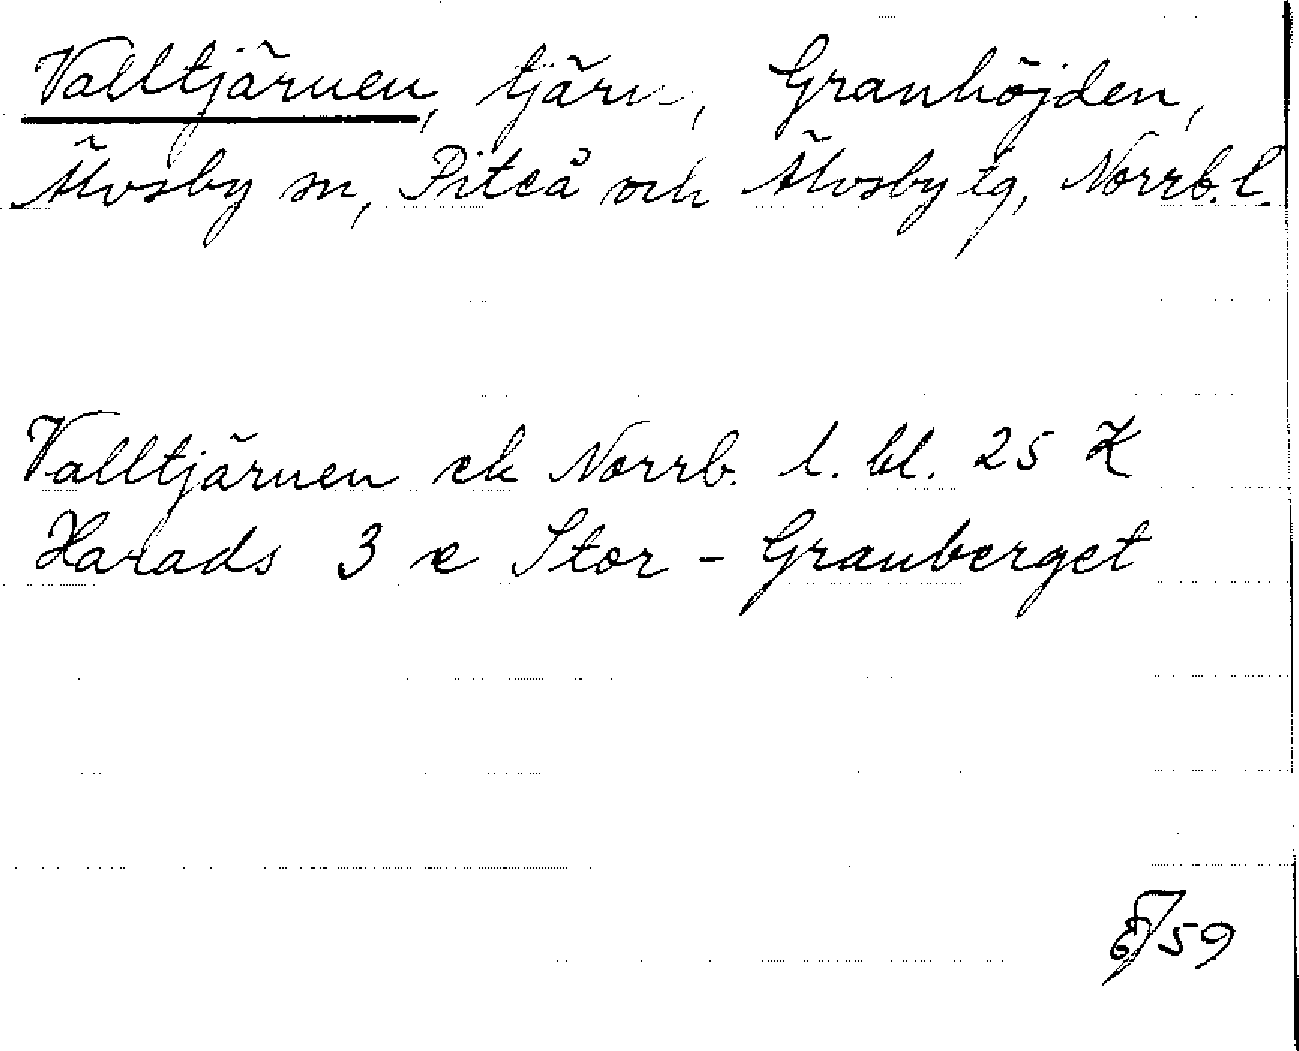 Valltjärnen, tjärn, Granhöjden,
Älvsby sn, Piteå och Älvsby tg, Norrb. l.
Valltjärnen ek Norrb. l. bl. 25 K
Harads 3 e Stor-Granberget
/59